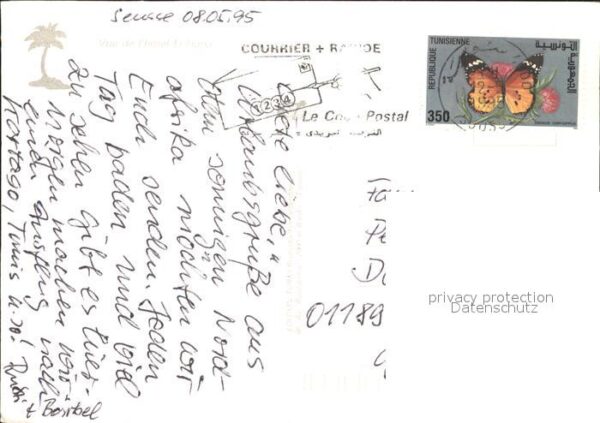 08.05.95
COURRIER + RAPIDE
1234
Le Code Postal
REPUBLIQUE TUNISIENNE
الجمهورية التونسية
350
Liebe
Urlaubsgrüße aus
dem sonnigen Nord-
afrika möchten wir
Euch senden. Jeden
Tag baden und viel
zu sehen gibt es hier.
Morgen machen wir
einen Ausflug nach
Kartago, Tunis u.so!
+ Bärbel
01189
privacy protection
Datenschutz